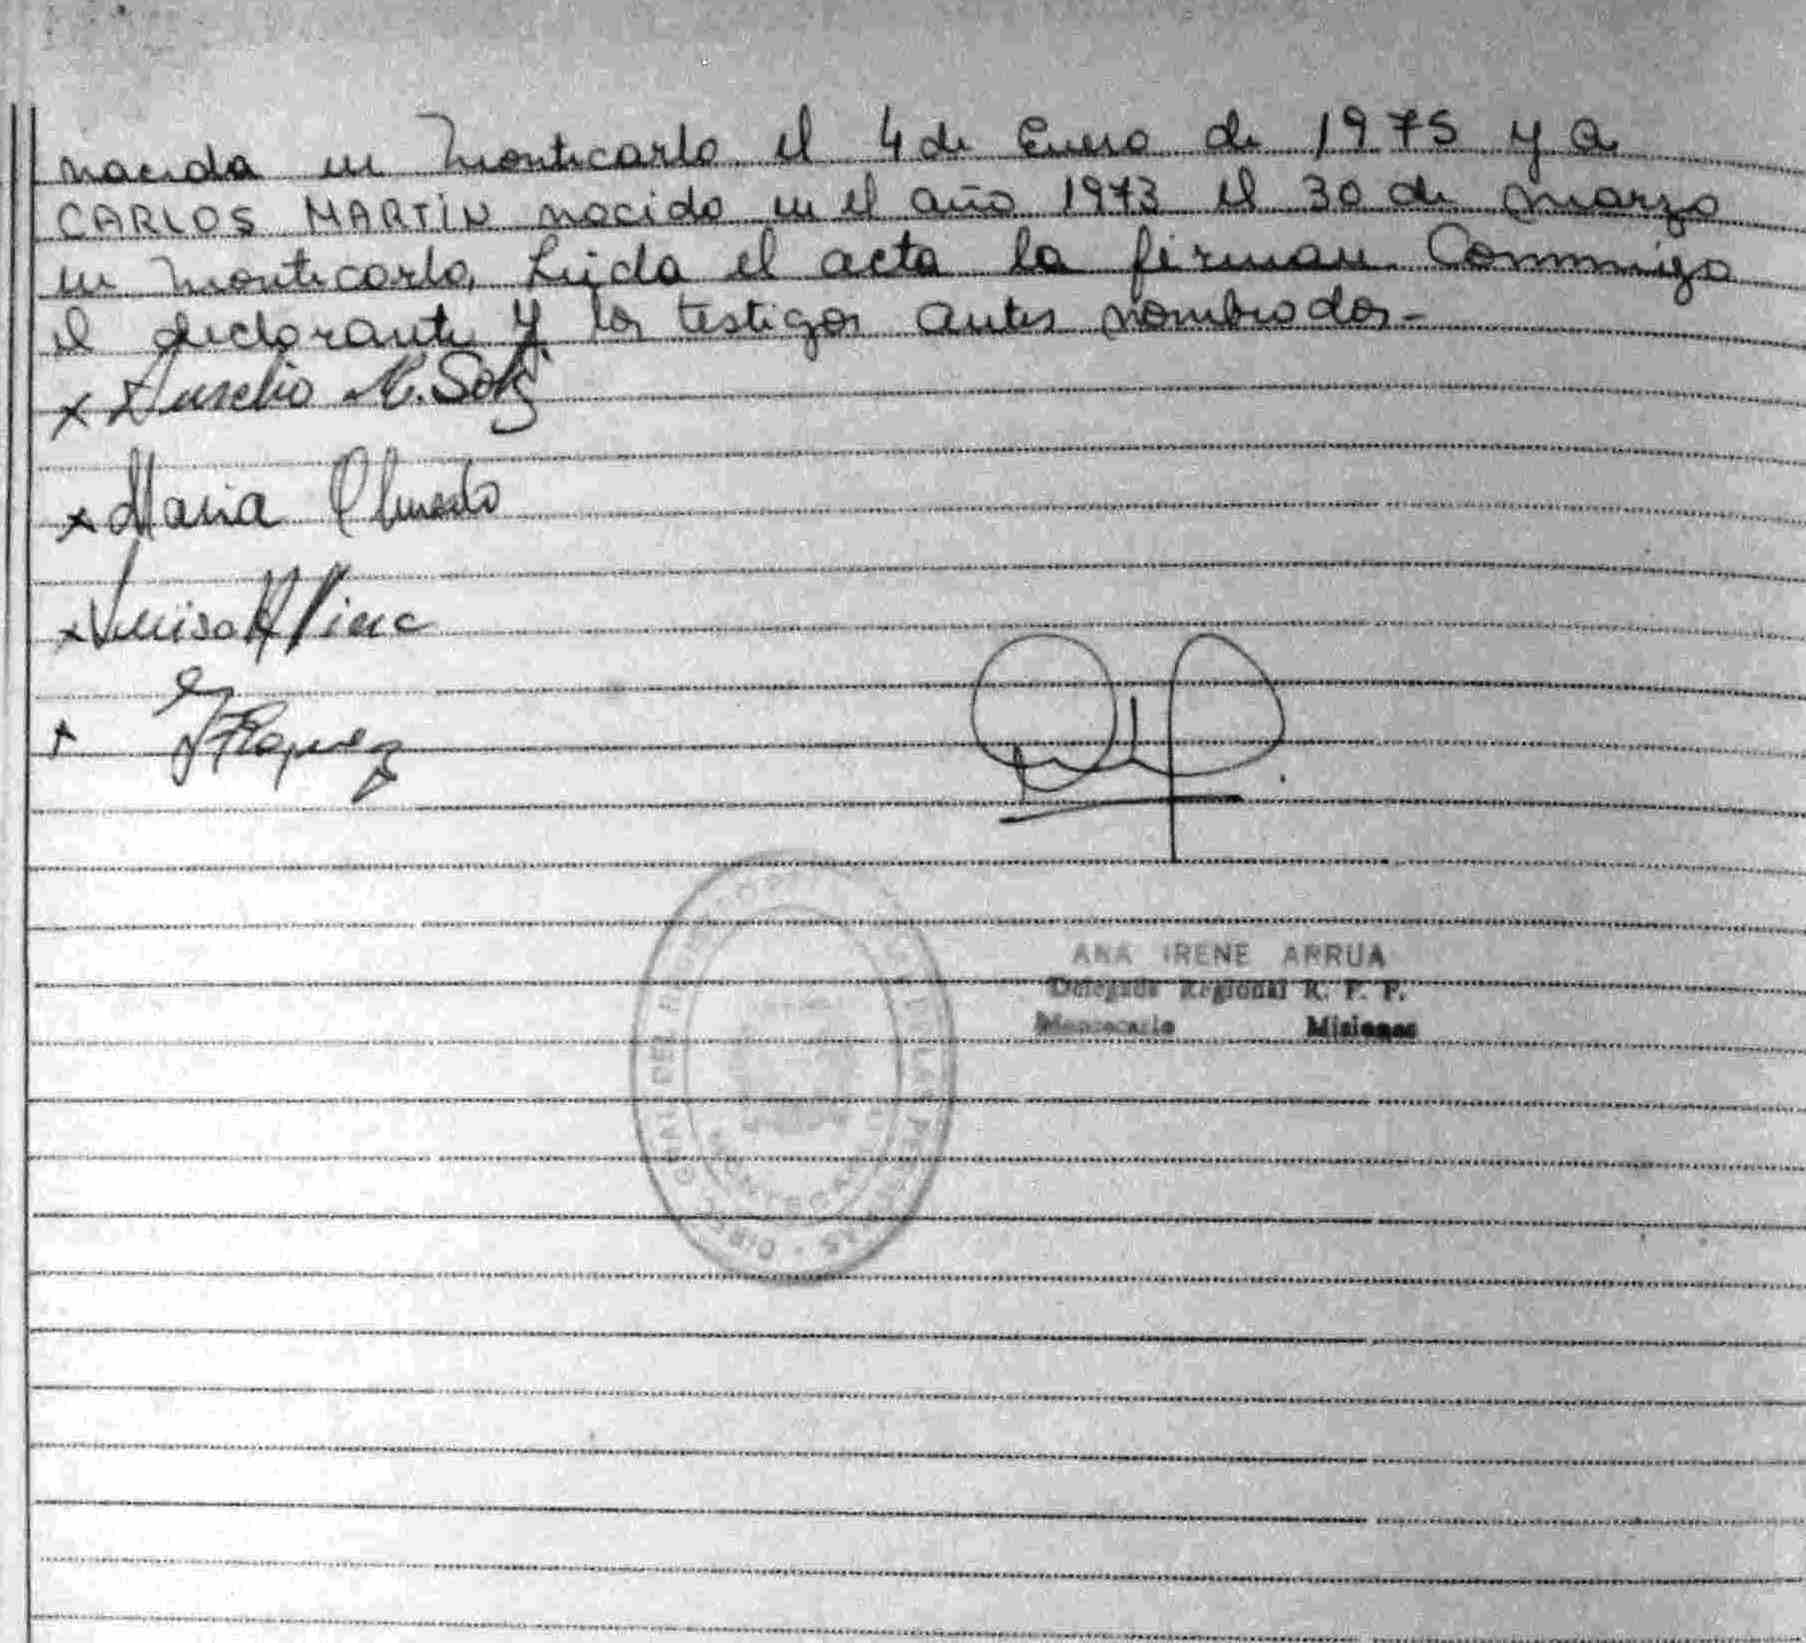 nacida en Montecarlo el 4 de Enero de 1975 y a
CARLOS MARTÍN nacido en el año 1973 el 30 de marzo
en Montecarlo, Leida el acta la firman Conmmigo
el declarante y los testigos antes nombrados-
x Aurelio R. Sosg
x Maria Olmedo
x Luisa
x
ANA IRENE ARRUA
Delegada Regional R. P. P.
Montecarlo Misiones
DIREC. GRAL. DEL REG. PROV. DE LAS PERSONAS
MONTECARLO